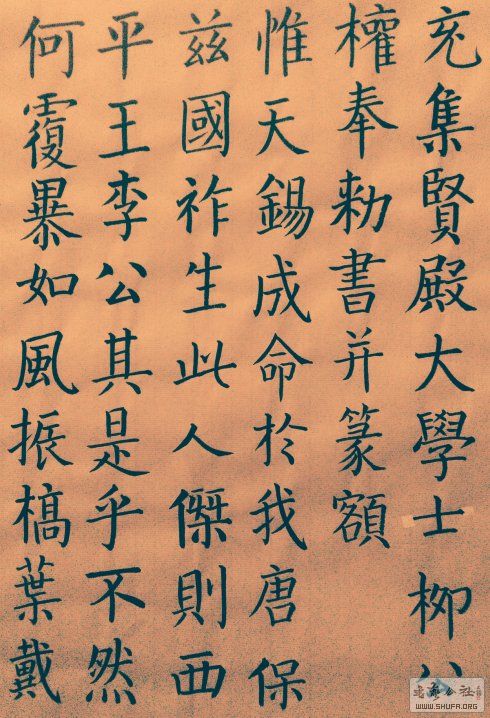 充集賢殿大學士柳公
權奉勅書并篆額
惟天錫成命於我唐保
兹國祚生此人傑則西
平王李公其是乎不然
何覆暴如風振槁葉戴
WWW.SHUFA.ORG